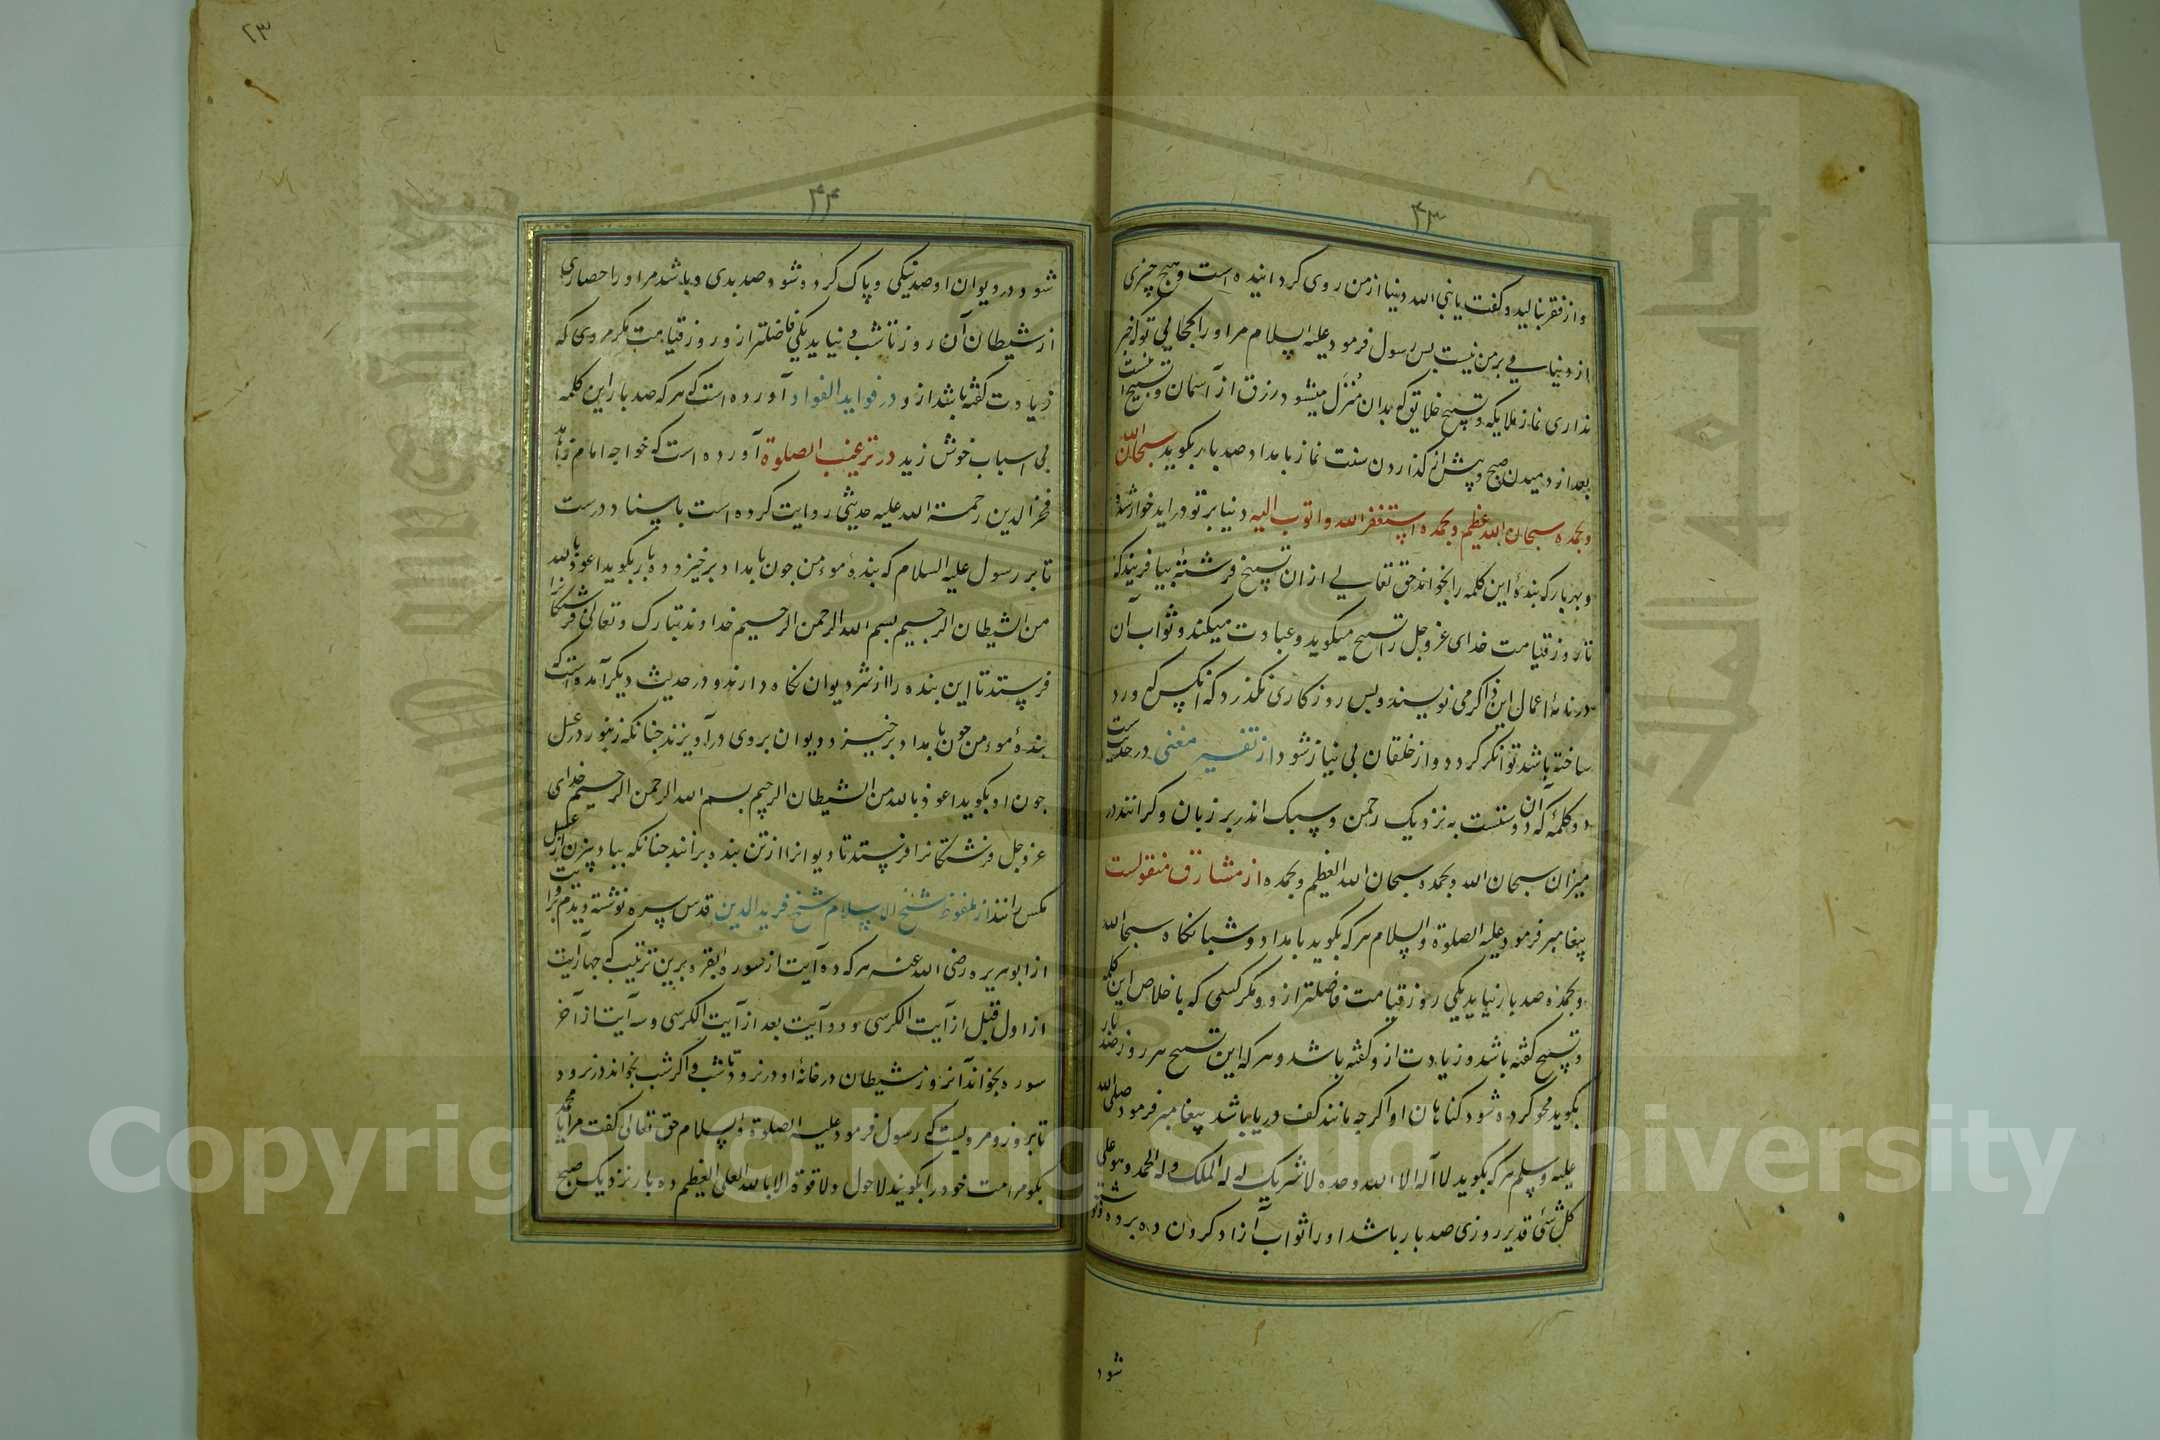 ۴۳
و از فقر بنالید و گفت یا نبی الله دنیا از من روی گردانیده است و هیچ چیزی
از دنیاوی بر من نیست پس رسول فرمود علیه السلام مر او را کجایی تو آخر
نذاری نماز ملایکه و تسبیح خلایق که بدان منزل میشود رزق از آسمان و تسبیح است
بعد از دمیدن صبح و پیش از گذاردن سنت نماز بامداد صد بار بگوید سبحان الله
و بحمده سبحان الله عظیم و بحمده استغفر الله و اتوب الیه دنیا بر تو در اید خوار شده
و بهر بار که بندهٔ این کلمه را بخواند حق تعالی از ان تسبیح فرشتهٔ بیافریند که
تا روز قیامت خدای عز و جل را تسبیح میگوید و عبادت میکند و ثواب آن
در نامهٔ اعمال این ذاکر می نویسند و بس روزگاری نگذرد که آنکس که ورد
ساخته باشد توانگر گردد و از خلقان بی نیاز شود از تفسیر مغنی در حدیث است
دو کلمهٔ که آن دوستست به نزدیک رحمن و سبک اند بر زبان و گرانند در
میزان سبحان الله و بحمده سبحان الله العظیم و بحمده از مشارق منقولست
پیغامبر فرمود علیه الصلوة و السلام هر که بگوید بامداد و شبانگاه سبحان الله
و بحمده صد بار نیاید یکی روز قیامت فاضلتر از و مگر کسی که باخلاص این کلمه
و تسبیح گفته باشد و زیادت از و گفته باشد و هر که این تسبیح هر روز صد بار
بگوید محو کرده شود گناهان او اگر چه مانند کف دریا باشد پیغامبر فرمود صلی الله
علیه و سلم هر که بگوید لا اله الا الله وحده لا شریک له له الملک و له الحمد و هو علی
کل شئ قدیر روزی صد بار باشد او را ثواب آزاد کردن ده برده و نوشته
شود
۲۳
۴۴
شود در دیوان او صد نیکی و پاک کرده شود صد بدی و باشد مر او را حصاری
از شیطان آن روز تا شب و نیاید یکی فاضلتر از و روز قیامت مگر مردی که
زیادت گفته باشد از و در فواید الفواد آورده است که هر که صد بار این کلمه
بی اسباب خوش زید در ترغیب الصلوة آورده است که خواجه امام زاهد
فخر الدین رحمة الله علیه حدیثی روایت کرده است باسناد درست
تا بر رسول علیه السلام که بندهٔ مومن چون بامداد برخیزد ده بار بگوید اعوذ بالله
من الشیطان الرجیم بسم الله الرحمن الرحیم خداوند تبارک و تعالی فرشتگان را
فرستد تا این بنده را از شر دیوان نگاه دارند و در حدیث دیگر آمده است که
بندهٔ مومن چون بامداد برخیزد دیوان بروی درآویزند چنانکه زنبور در عسل
چون او بگوید اعوذ بالله من الشیطان الرجیم بسم الله الرحمن الرحیم خدای
عز و جل فرشتگانرا فرستد تا دیوانرا از تن بنده برانند چنانکه بباد بیزن از عسل
مگس رانند از ملفوظ شیخ الاسلام شیخ فرید الدین قدس سره نوشته دیدم روایت
از ابو هریره رضی الله عنه هر که ده آیت از سوره البقره برین ترتیب که چهار آیت
از اول قبل از آیت الکرسی و دو آیت بعد از آیت الکرسی و سه آیت از آخر
سوره بخواند آنروز شیطان در خانهٔ او در نرود تا شب و اگر شب بخواند در نرود
تا بروز و مرویست که رسول فرمود علیه الصلوة و السلام حق تعالی گفت مرا یا محمد
بگو مر امت خود را بگویند لا حول و لا قوة الا بالله العلی العظیم ده بار نزدیک صبح
Copyright © King Saud University